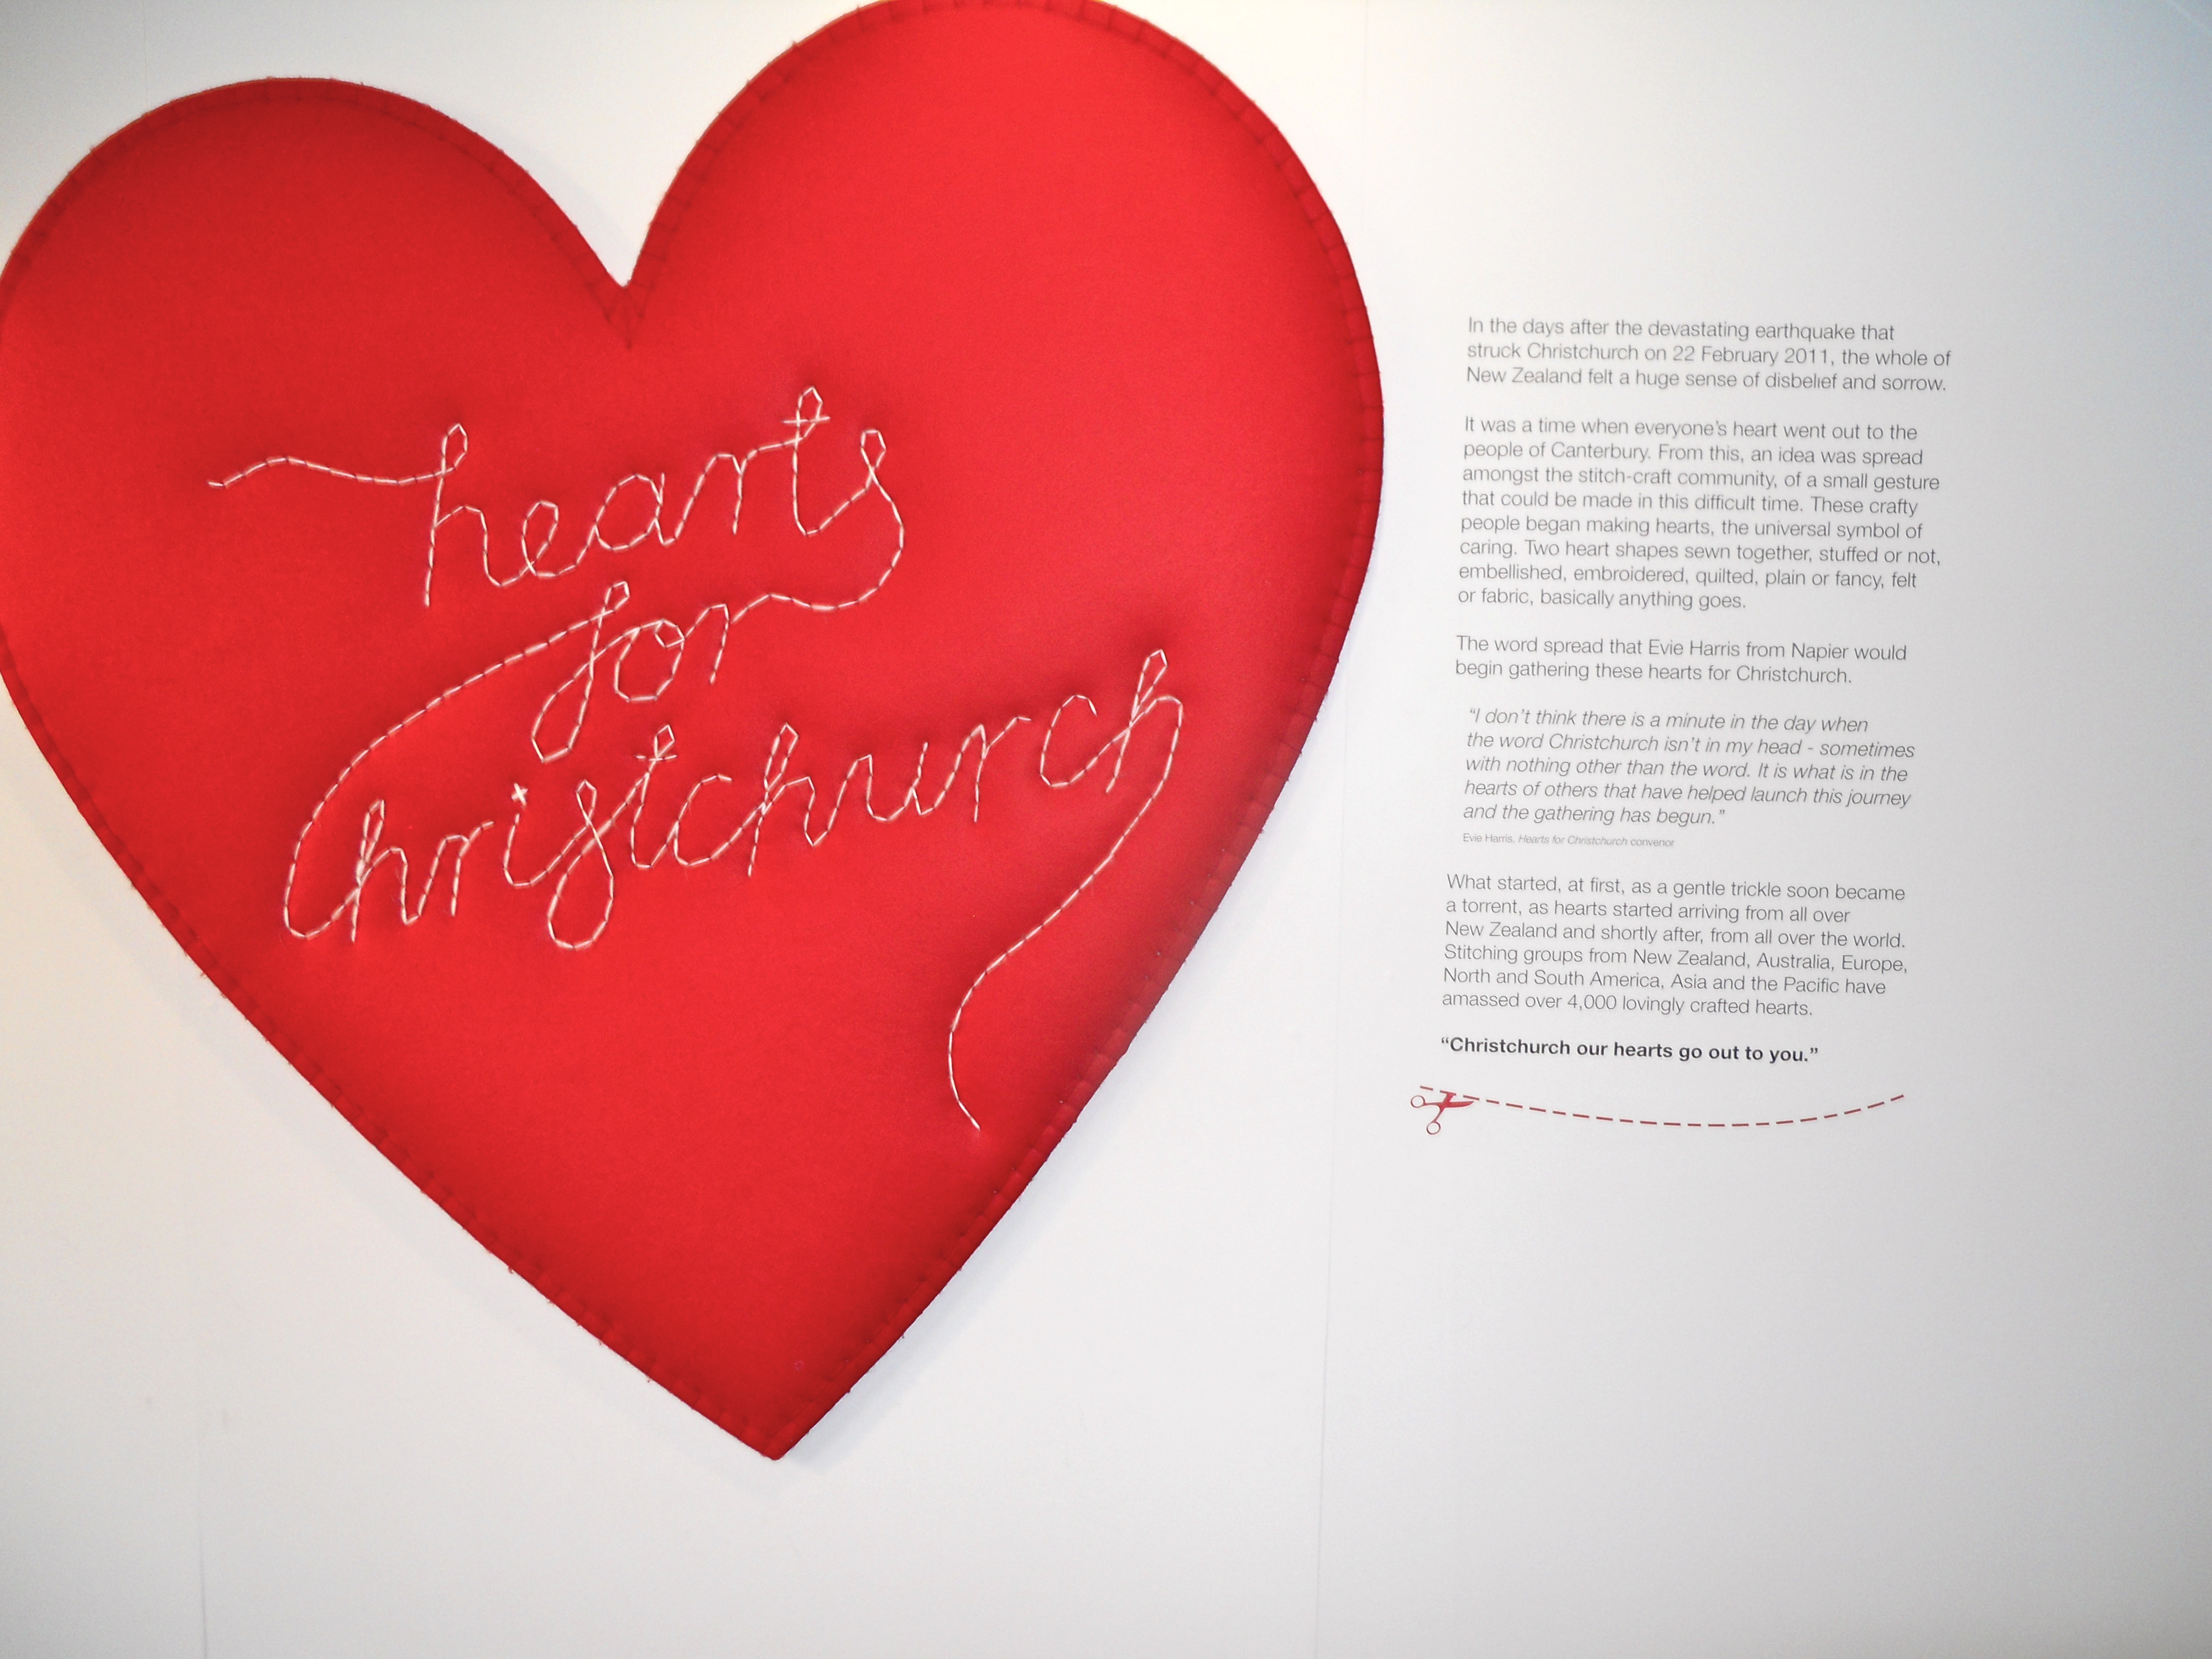 hearts
for
christchurch
In the days after the devastating earthquake that
struck Christchurch on 22 February 2011, the whole of
New Zealand felt a huge sense of disbelief and sorrow.
It was a time when everyone's heart went out to the
people of Canterbury. From this, an idea was spread
amongst the stitch-craft community, of a small gesture
that could be made in this difficult time. These crafty
people began making hearts, the universal symbol of
caring. Two heart shapes sewn together, stuffed or not,
embellished, embroidered, quilted, plain or fancy, felt
or fabric, basically anything goes.
The word spread that Evie Harris from Napier would
begin gathering these hearts for Christchurch.
"I don't think there is a minute in the day when
the word Christchurch isn't in my head - sometimes
with nothing other than the word. It is what is in the
hearts of others that have helped launch this journey
and the gathering has begun."
Evie Harris, Hearts for Christchurch convenor
What started, at first, as a gentle trickle soon became
a torrent, as hearts started arriving from all over
New Zealand and shortly after, from all over the world.
Stitching groups from New Zealand, Australia, Europe,
North and South America, Asia and the Pacific have
amassed over 4,000 lovingly crafted hearts.
"Christchurch our hearts go out to you."